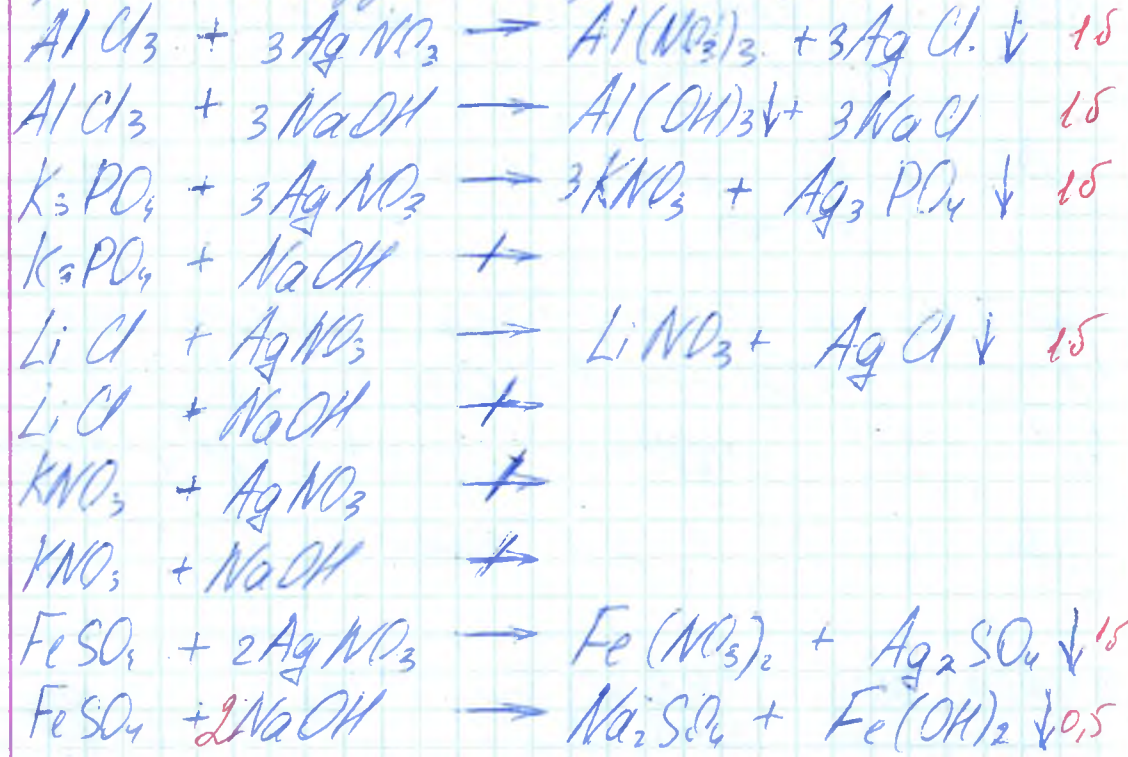 AlCl₃ + 3AgNO₃ → Al(NO₃)₃ + 3AgCl ↓ 1б
AlCl₃ + 3NaOH → Al(OH)₃↓ + 3NaCl 1б
K₃PO₄ + 3AgNO₃ → 3KNO₃ + Ag₃PO₄ ↓ 1б
K₃PO₄ + NaOH ↛
LiCl + AgNO₃ → LiNO₃ + AgCl ↓ 1б
LiCl + NaOH ↛
KNO₃ + AgNO₃ ↛
KNO₃ + NaOH ↛
FeSO₄ + 2AgNO₃ → Fe(NO₃)₂ + Ag₂SO₄ ↓ 1б
FeSO₄ + 2NaOH → Na₂SO₄ + Fe(OH)₂ ↓ 0,5